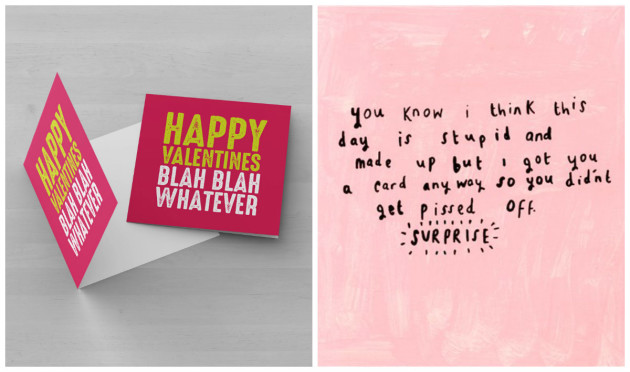 HAPPY
VALENTINES
BLAH BLAH
WHATEVER
HAPPY
VALENTINES
BLAH BLAH
WHATEVER
you know i think this
day is stupid and
made up but i got you
a card anyway so you didn't
get pissed off.
SURPRISE